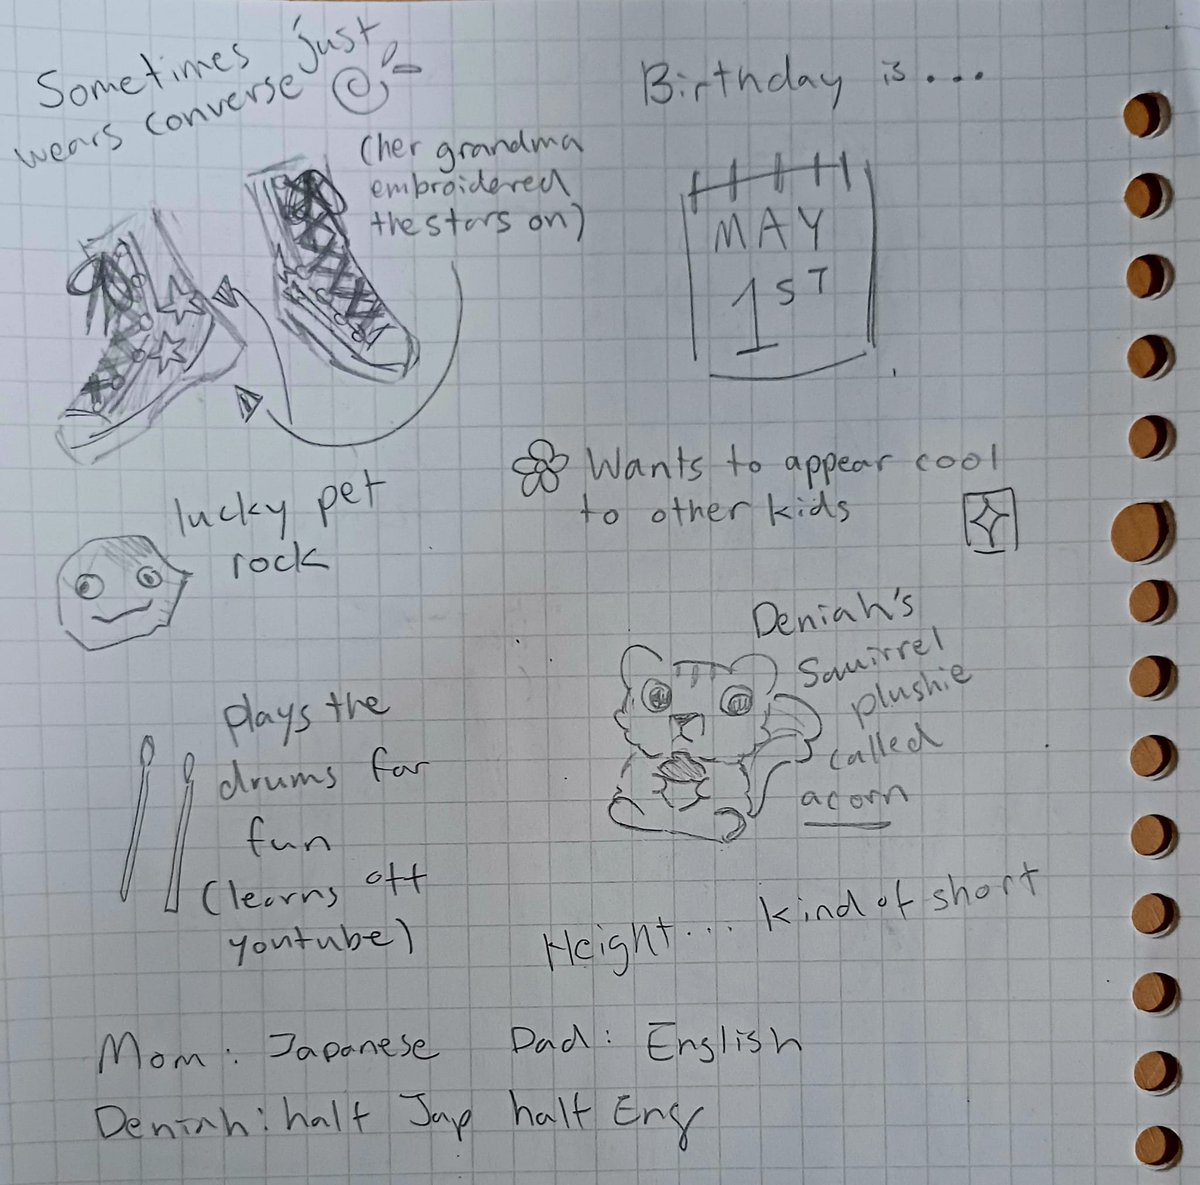 Sometimes just
wears converse
(her grandma
embroidered
the stars on)
Birthday is...
MAY
1ST
Wants to appear cool
to other kids
lucky pet
rock
Deniah's
Squirrel
plushie
called
acorn
plays the
drums for
fun
(learns off
youtube)
Height... kind of short
Mom: Japanese Dad: English
Deniah: half Jap half Eng